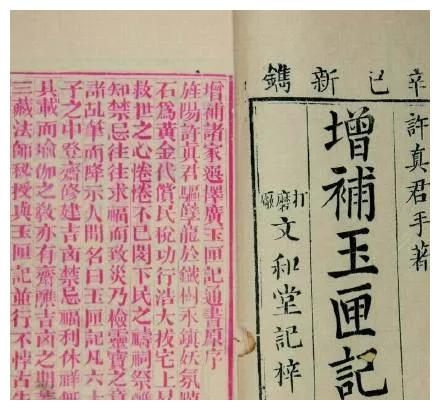 辛巳新鐫
許真君手著
增補玉匣記
打磨廠
文和堂記梓
增補諸家選擇廣玉匣記通書原序
旌陽許真君驅孽龍於鐵樹永鎮妖氛
石為黃金代償民稅功行浩大拔宅上昇
救世之心惓惓不已閔下民之禱祠祭
知禁忌往往求福而致災乃檢靈寶之章
請乩筆而降示人間名曰玉匣記凡六十
子之中登齋修建吉凶禁忌福利休祥無
具載而瑜伽之教亦有齋醮吉凶之期
三藏法師秘授與玉匣記並行不悖古